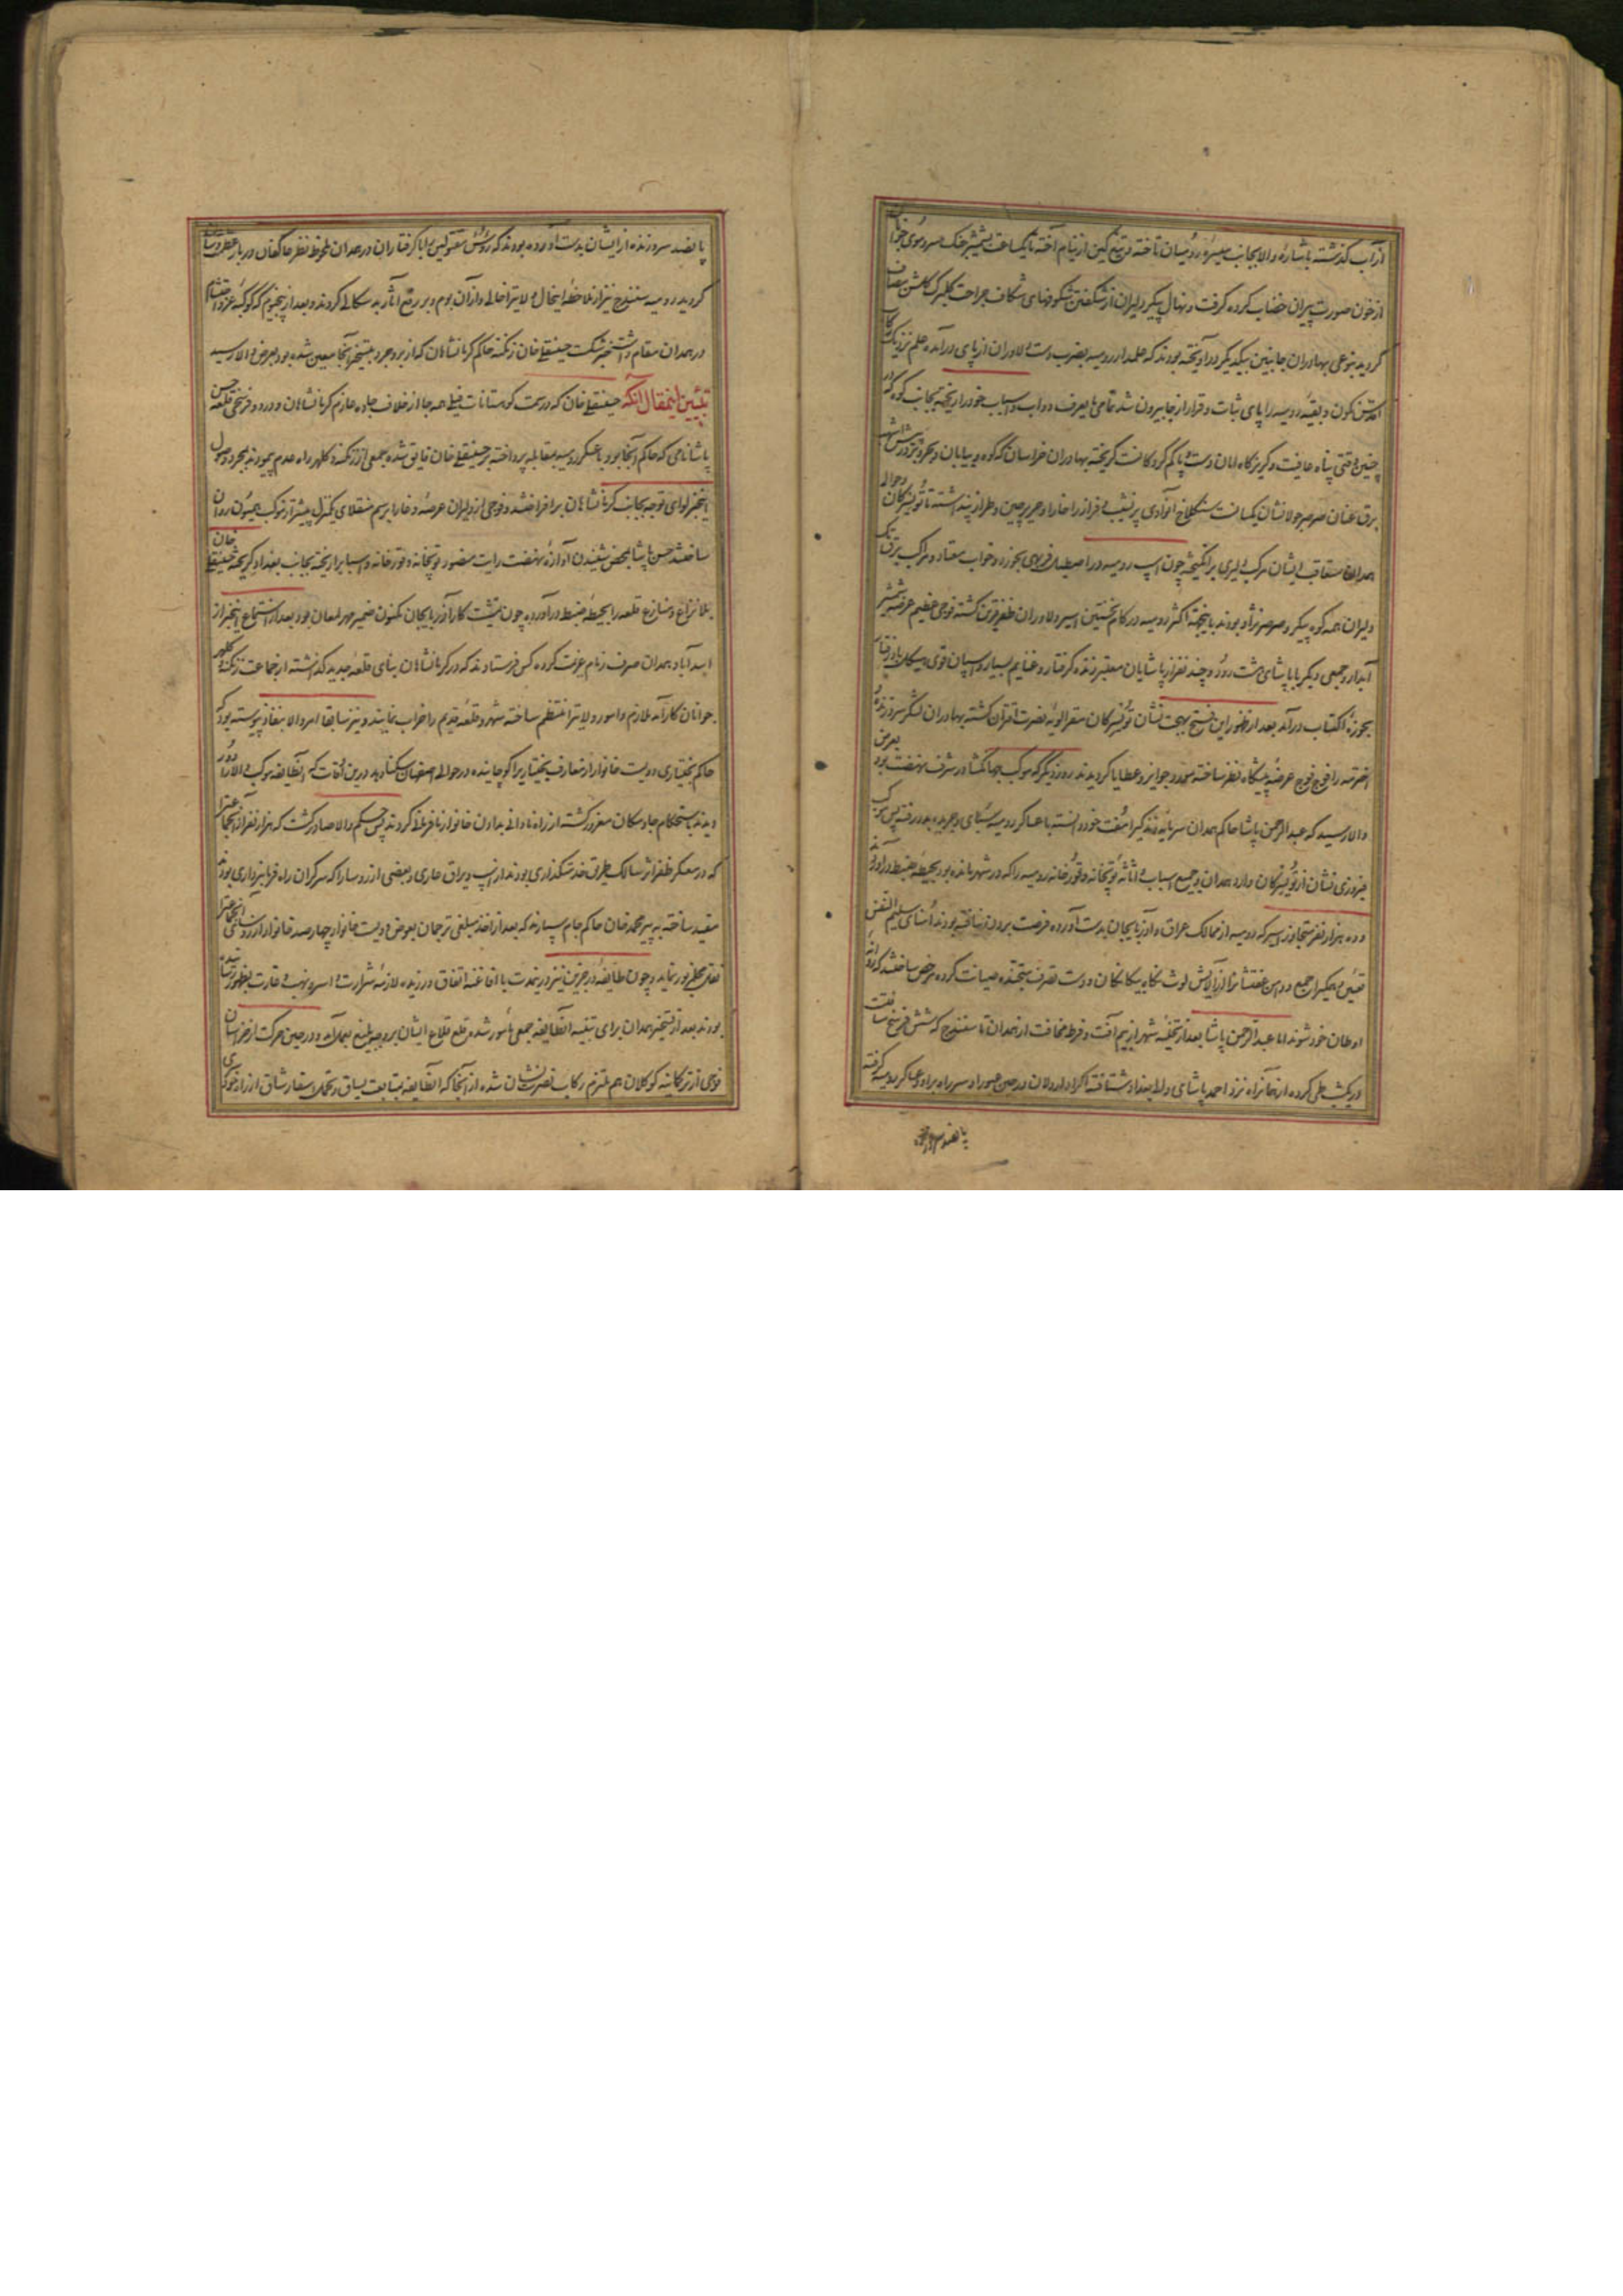 از آب گذشته باشارهٔ والا بجانب میسرهٔ رومیان تاخته و تیغ کین از نیام آخته تا یکساعت بشمشیر جنک سر و موی جوانان
از خون صورت پیران خضاب کرده گرفت و نهال پیکر دلیران از شکفتن شکوفهای شکاف جراحت گلبرک گلشن مصاف
گردید بنوعی بهادران جانبین بیکدیگر درآویخته بودند که علمدار رومیه بضرب دست دلاوران از پای درآمده علم نزدیک رکاب
اقدس نکون و بقیه رومیه را پای ثبات و قرار از جا بیرون شد تمامی بایعرف دواب و اسباب خود را ریخته بجانب کوه که در
چنین وقتی پناه عافیت و گریزگاه امان دست و پا گم کردکانست گریخته بهادران خراسان که کوه و بیابان و بحر و بر در پیش اشهب
برق عنان صرصر جولانشان یکسانست سنکلاخ آنوادی پر نشیب و فراز را خارا و حریر چین و طراز پنداشته تا توی سرکان و حوالی
همدان متعاقب ایشان مرکب دلیری برانگیخته چون اسب رومیه در اصطبل فربهی بخور و خواب معتاد و مرکب برق تک
دلیران همه کوه پیکر و صرصر نژاد بودند باینجهة اکثر رومیه در کام نخستین اسیر دلاوران ظفر قرین کشته فوجی عظیم عرضهٔ شمشیر
آبدار و جمعی دیگر با پاشای دشت رود و چند نفر از پاشایان معتبر زنده گرفتار و غنایم بسیار و اسبان قوی هیکل باد رفتار
بحوزهٔ اکتساب درآمد بعد از ظهور این فتح بهجت نشان توی سرکان مقر الویه نصرت اقتران کشته بهادران لشکر سر و زنده
اخترمه را فوج فوج عرضهٔ پیشگاه نظر ساخته مورد جوایز و عطایا گردیدند روز دیگر که موکب جهانگشا در شرف نهضت بود بعرض
والا رسید که عبدالرحمن پاشا حاکم همدان سرمایهٔ زندگی را مفت خود دانسته با عساکر رومیه سبکپای و جریده بدر رفته پس موکب
فیروزی نشان از توی سرکان وارد همدان و جمیع اسباب و اثاثهٔ توپخانه و قورخانه رومیه را که در شهر مانده بود بحیطهٔ ضبط درآوردند
و ده هزار نفر متجاوز اسیر که رومیه از ممالک عراق و آذربایجان بدست آورده فرصت بردن نیافته بودند امنای سلیم النفس
تعیین و همگی را جمع و دامن عفتشانرا از آلایش لوث نگاه بیگانگان و دست تصرف سپاه صیانت کرده مرخص ساختند که روانه
اوطان خود شوند اما عبدالرحمن پاشا بعد از تخلیهٔ شهر از بیم آفت و فرط مخافت از همدان تا سنندج که شش فرسخ مسافتست
در یکشب طی کرده از آنجا نزد احمد پاشای والی بغداد شتافته اکراد اردلان در حین عبور او سر راه بر او و عساکر رومیه گرفته
پانصد سر و زنده
پانصد سر و زنده از ایشان بدست آورده بودند که رؤس مقتولین با گرفتاران در همدان ملحوظ نظر عاکفان دربار عظمت و شان
گردید رومیه سنندج نیز از ملاحظهٔ اینحال ولایترا خالی و از آن بوم و بر رفع آثار بدسگالی کردند و بعد از پنجروز که کوکبهٔ عز و احتشام
در همدان مقام داشت خبر شکست حسینقلی خان زنگنه حاکم کرمانشاهان که از بروجرد بتسخیر آنجا معین شده بود بعرض والا رسید
تبیین اینمقال آنکه حسینقلی خان که در سمت کوهستانات فیلی همه جا از خلاف جاده عازم کرمانشاهان و در دو فرسخی قلعه حسن
پاشا نامی که حاکم آنجا بود با عسکر رومیه بمقابله پرداخته بر حسینقلی خان فایق شده جمعی از زنگنه و کلهر راه عدم پیمودند بمجرد وصول
اینخبر لوای توجه بجانب کرمانشاهان برافراختند و فوجی از دلیران عرصهٔ وغا را برسم منقلای یکمنزل پیشتر از موکب همیون روان
ساختند حسن پاشا بمحض شنیدن آوازهٔ نهضت رایت منصور توپخانه و قورخانه و اسبابرا ریخته بجانب بغداد گریخته حسینقلی خان
بلا نزاع و منازع قلعه را بحیطهٔ ضبط درآورده چون تمشیت کار آذربایجان مکنون ضمیر مهر لمعان بود بعد از استماع اینخبر از
اسدآباد همدان صرف زمام عزیمت کرده کس فرستادند که در کرمانشاهان بنای قلعهٔ جدید گذاشته از جماعت زنگنه و کلهر
جوانان کارآمد ملازم و امور ولایترا منتظم ساخته شهر و قلعهٔ قدیم را خراب نمایند و نیز سابقا امر والا بنفاذ پیوسته بود که
حاکم بختیاری دویست خانوار از معارف بختیاریرا کوچانیده در حوالی اصفهان سکنا دهد درین اوقات که آنطایفه موکب والا را دور
دیدند باستحکام جا و مکان مغرور کشته از راه نادانی بدادن خانوار نافرمانی کردند پس حکم والا صادر گشت که هزار نفر از آنجماعترا
که در معسکر ظفر اثر سالک طریق خدمتگذاری بودند از اسب و یراق عاری و بعضی از رؤسا را که سرگران راه فرمانبرداری بودند
مقید ساخته به پیر محمد خان حاکم جام سپارند که بعد از اخذ مبلغی ترجمان بعوض دویست خانوار چهارصد خانوار از رؤسای آنجماعترا
نقل محل مزبور نماید و چون طایفهٔ درجزین نیز در مدت با افاغنه اتفاق ورزیده لازمهٔ شرارت و اسر و نهب و غارت بظهور رسانیده
بودند بعد از تسخیر همدان برای تنبیه آنطایفه جمعی مأمور شده قلع قلاع ایشان بر وجه بلیغ بعمل آمد و در حین حرکت از خراسان
فوجی از ترکمانیه کوکلان هم ملتزم رکاب نصرت نشان شده از آنجا که آنطایفه بمتابعت یساق و تحمل اسفار شاق از زاد خودسری